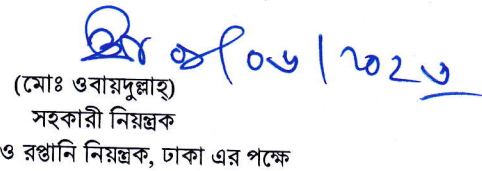 ০৮/০৬/২০২৩
(মোঃ ওবায়দুল্লাহ)
সহকারী নিয়ন্ত্রক
ও রপ্তানি নিয়ন্ত্রক, ঢাকা এর পক্ষে